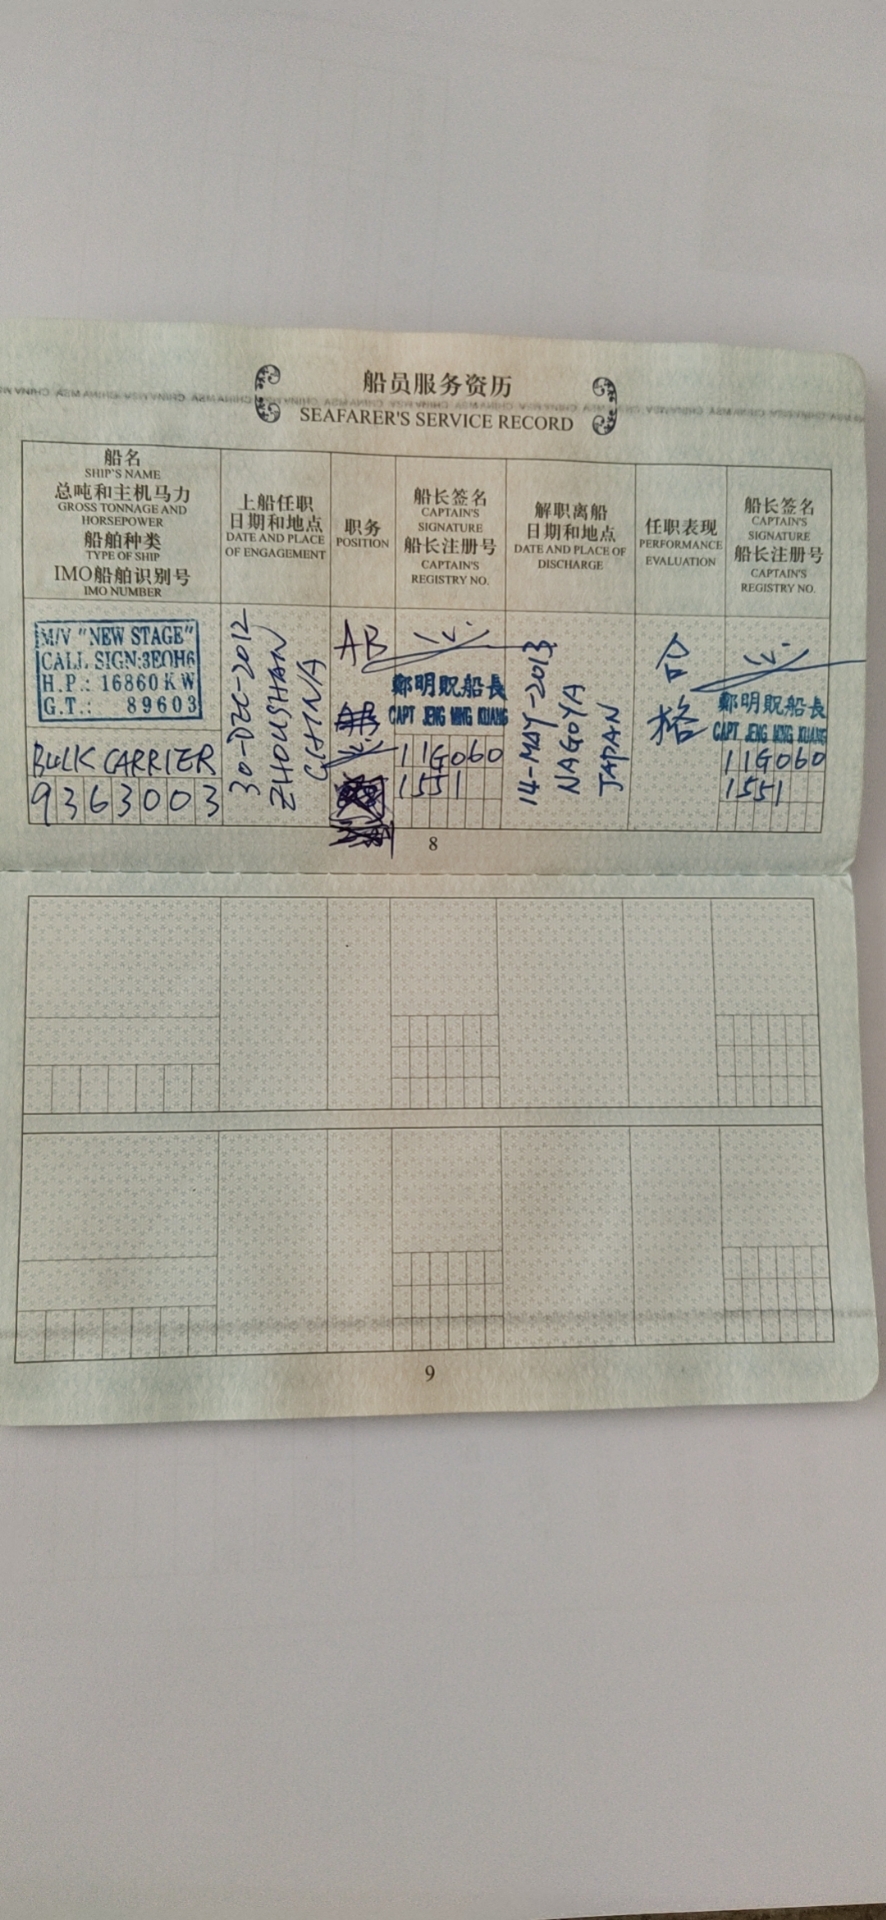 船员服务资历
SEAFARER'S SERVICE RECORD
船名
SHIP'S NAME
总吨和主机马力
GROSS TONNAGE AND
HORSEPOWER
船舶种类
TYPE OF SHIP
IMO船舶识别号
IMO NUMBER
上船任职
日期和地点
DATE AND PLACE
OF ENGAGEMENT
职务
POSITION
船长签名
CAPTAIN'S
SIGNATURE
船长注册号
CAPTAIN'S
REGISTRY NO.
解职离船
日期和地点
DATE AND PLACE OF
DISCHARGE
任职表现
PERFORMANCE
EVALUATION
船长签名
CAPTAIN'S
SIGNATURE
船长注册号
CAPTAIN'S
REGISTRY NO.
M/V "NEW STAGE"
CALL SIGN:3EOH6
H.P.: 16860KW
G.T.: 89603
BULK CARRIER
9363003
30-DEC-2012
ZHOUSHAN
CHINA
AB
鄭明貺船長
CAPT JENG MING KUANG
11G060
1551
14-MAY-2013
NAGOYA
JAPAN
合
格
鄭明貺船長
CAPT JENG MING KUANG
11G060
1551
8
9